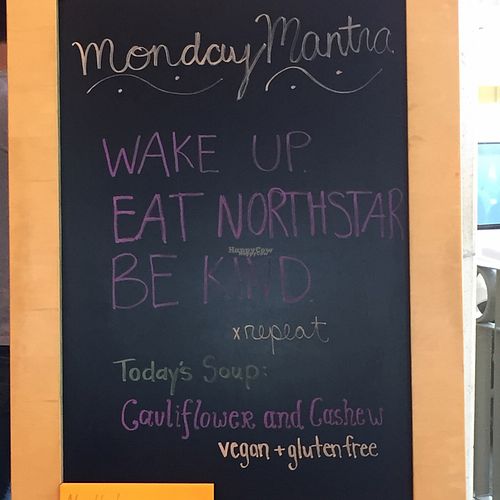 Monday Mantra
WAKE UP.
EAT NORTHSTAR
BE KIND.
x repeat
Today's Soup:
Cauliflower and Cashew
vegan + gluten free
HappyCow